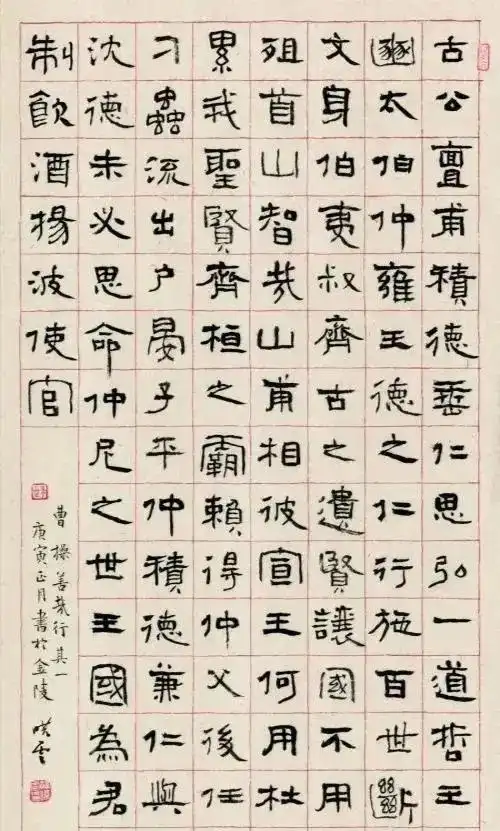 古公亶甫積德垂仁思弘一道哲王
豳太伯仲雍王德之仁行施百世斷
文身伯夷叔齊古之遺賢讓國不用
殂首山智哉山甫相彼宣王何用杜
累我聖賢齊桓之霸賴得仲父後任
刁蟲流出户晏子平仲積德兼仁與
沈德未必思命仲尼之世王國為君
制飲酒揚波使官
曹操善哉行其一
庚寅正月書於金陵